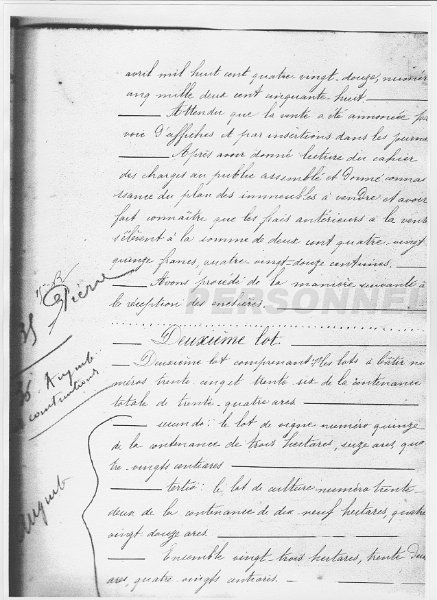 avril mil huit cent quatre vingt-douze, numéro
cinq mille deux cent cinquante-huit.
Attendu que la vente a été annoncée par
voie d'affiches et par insertions dans les journaux
Après avoir donné lecture du cahier
des charges au public assemblé et donné connais
sance du plan des immeubles à vendre et avoir
fait connaître que les frais antérieurs à la vente
s'élèvent à la somme de deux cent quatre-vingt
quinze francs, quatre-vingt-douze centimes.
Avons procédé de la manière suivante à
la réception des enchères.
PERSONNEL
Pierre
Deuxième lot.
Deuxième lot comprenant: les lots à bâtir nu
méros trente cinq et trente six de la contenance
totale de trente-quatre ares
secundo: le lot de vigne numéro quinze
de la contenance de trois hectares, seize ares, qua
tre-vingts centiares
tertio: le lot de culture numéro trente
deux de la contenance de dix-neuf hectares, quatre
vingt douze ares.
Ensemble vingt-trois hectares, trente deux
ares, quatre-vingts centiares.